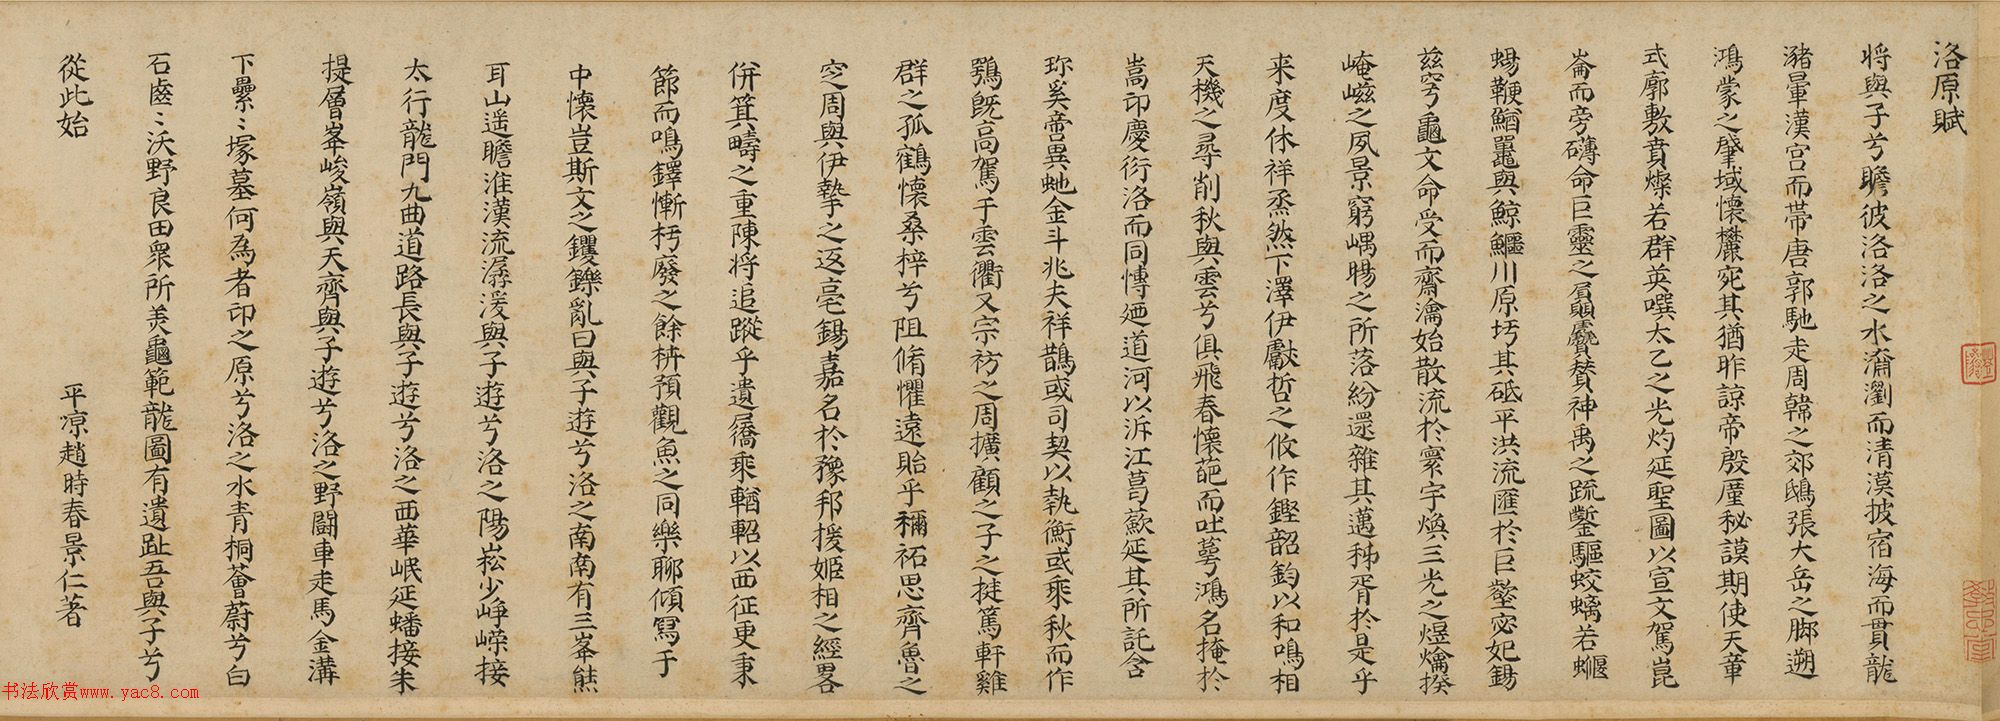 洛原賦
將與子兮瞻彼洛洛之水㴋瀏而清漠披宿海而貫龍
豬暈漢宮而帶唐郭馳走周韓之郊鴟張大岳之腳遡
鴻蒙之肇域懷麓宛其猶昨諒帝殷厪秘謨期使天葦
式廓敷賁燦若群英噀太乙之光灼延聖圖以宣文駕崑
崙而旁礴命巨靈之屓贔贊神禹之疏鑿驅蛟螭若蝘
蜴鞭鰌鼉與鯨鱷川原圬其砥平洪流匯於巨壑宓妃錫
茲穹龜文命受而齋瀹始散流於寰宇煥三光之煜爚揆
崦嵫之夙景窮嵎暘之所落紛還雜其邁秭胥於是乎
来度休祥烝然下澤伊獻哲之攸作鏗韶鈞以和鳴相
天機之尋削秋與雲兮俱飛春懷葩而吐萼鴻名掩於
嵩卬慶衍洛而同慱廼道河以泝江蔓延其所託含
珎奚啻異虵金斗兆夫祥鵲或司契以執衡或乘秋而作
鶚既高駕于雲衢又宗祊之周擴顧之子之挺篤軒雞
群之孤鶴懷桑梓兮阻脩懼遠貽乎禰祏思齊魯之
窆周與伊摯之返亳錫嘉名於豫邦援姬相之經畧
併箕疇之重陳将追蹤乎遺屩乘輶軺以西征更秉
節而鳴鐸慚杇廢之餘枿預觀魚之同樂聊傾寫于
中懷豈斯文之钁鑠亂曰與子遊兮洛之南南有三峯熊
耳山遥瞻淮漢流潺湲與子遊兮洛之陽崧少崢嶸接
太行龍門九曲道路長與子遊兮洛之西華岷延蟠接朱
提層峯峻嶺與天齊與子遊兮洛之野闘車走馬金溝
下纍〻塚墓何為者卬之原兮洛之水青桐薈蔚兮白
石齒〻沃野良田衆所羙龜範龍圖有遺趾吾與子兮
從此始
平凉趙時春景仁著
书法欣赏www.yac8.com